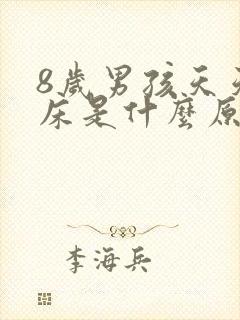 8歲男孩天天
床是什麼原
李海兵